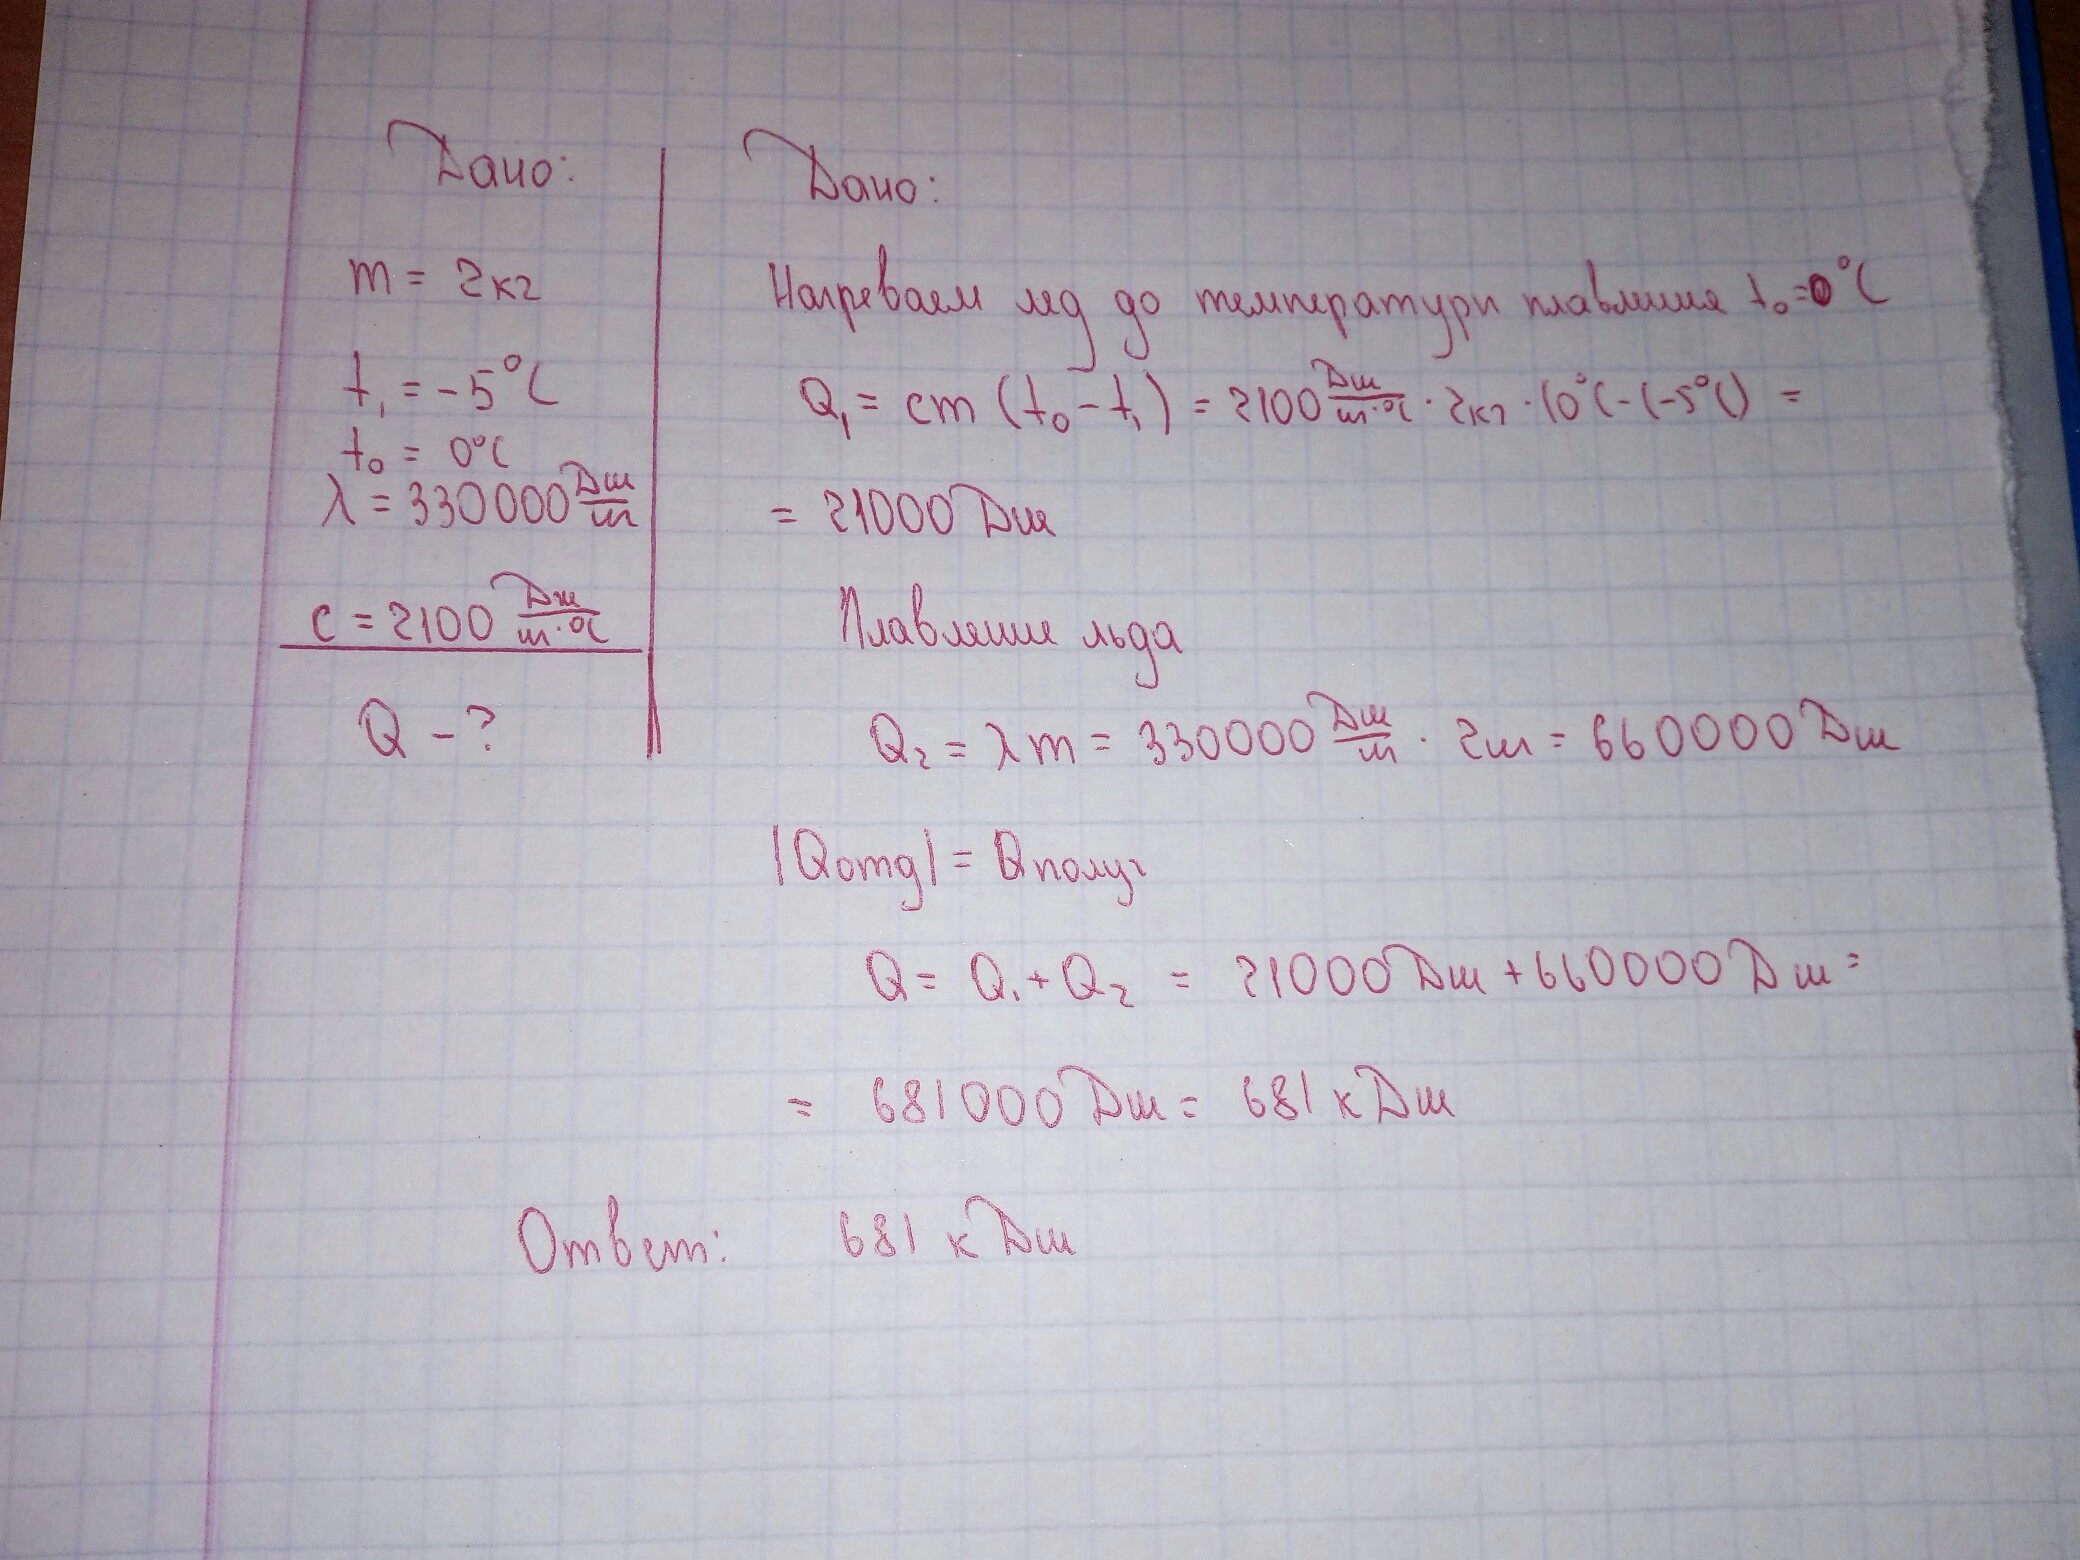 Дано:
m = 2кг
t₁ = -5°C
t₀ = 0°C
λ = 330000 Дш/m
c = 2100 Дж/m·°C
Q - ?
Дано:
Нагреваем лед до температури плавления t₀=0°C
Q₁ = cm (t₀ - t₁) = 2100 Дш/m·°C · 2кг · (0°C-(-5°C) =
= 21000 Дш
Плавление льда
Q₂ = λm = 330000 Дш/m · 2ш = 660000 Дш
|Qотд| = Qполуг
Q = Q₁ + Q₂ = 21000 Дш + 660000 Дш =
= 681000 Дш = 681 кДш
Ответ: 681 кДш